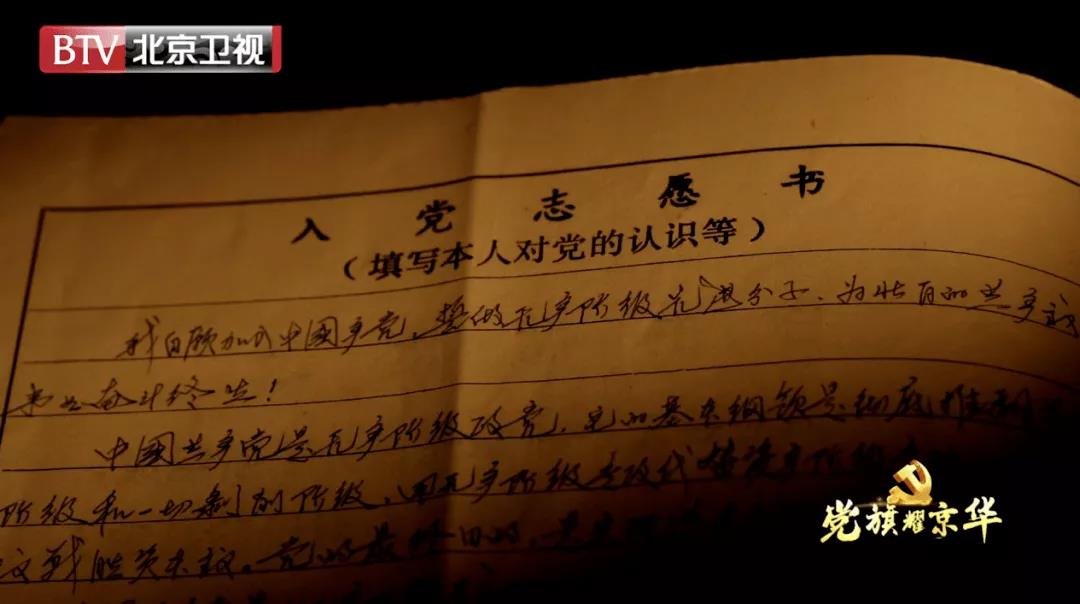 BTV 北京卫视
入党志愿书
（填写本人对党的认识等）
我自愿加入中國产党，誓做无产阶级先进分子、为的共产主
奋斗终生！
中國共产党是无产阶级政党，它的基本纲领是彻底推翻
阶级和一切剥削阶级，用无产阶级专政代替资产阶级
义战胜资本主义。党的最终目的，是实现
党旗耀京华